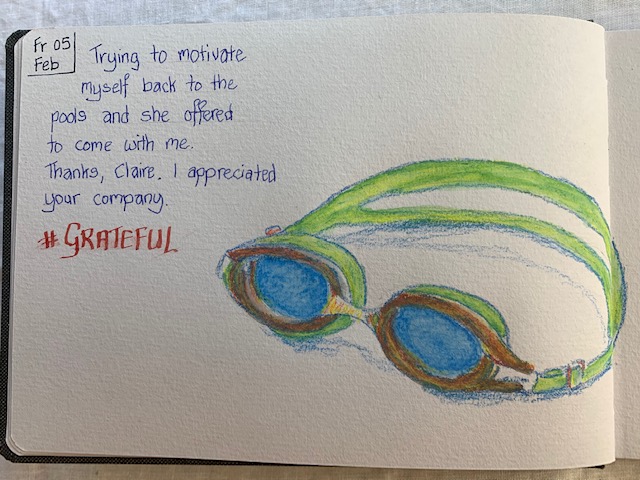 Fr 05
Feb
Trying to motivate
myself back to the
pools and she offered
to come with me.
Thanks, Claire. I appreciated
your company.
#GRATEFUL